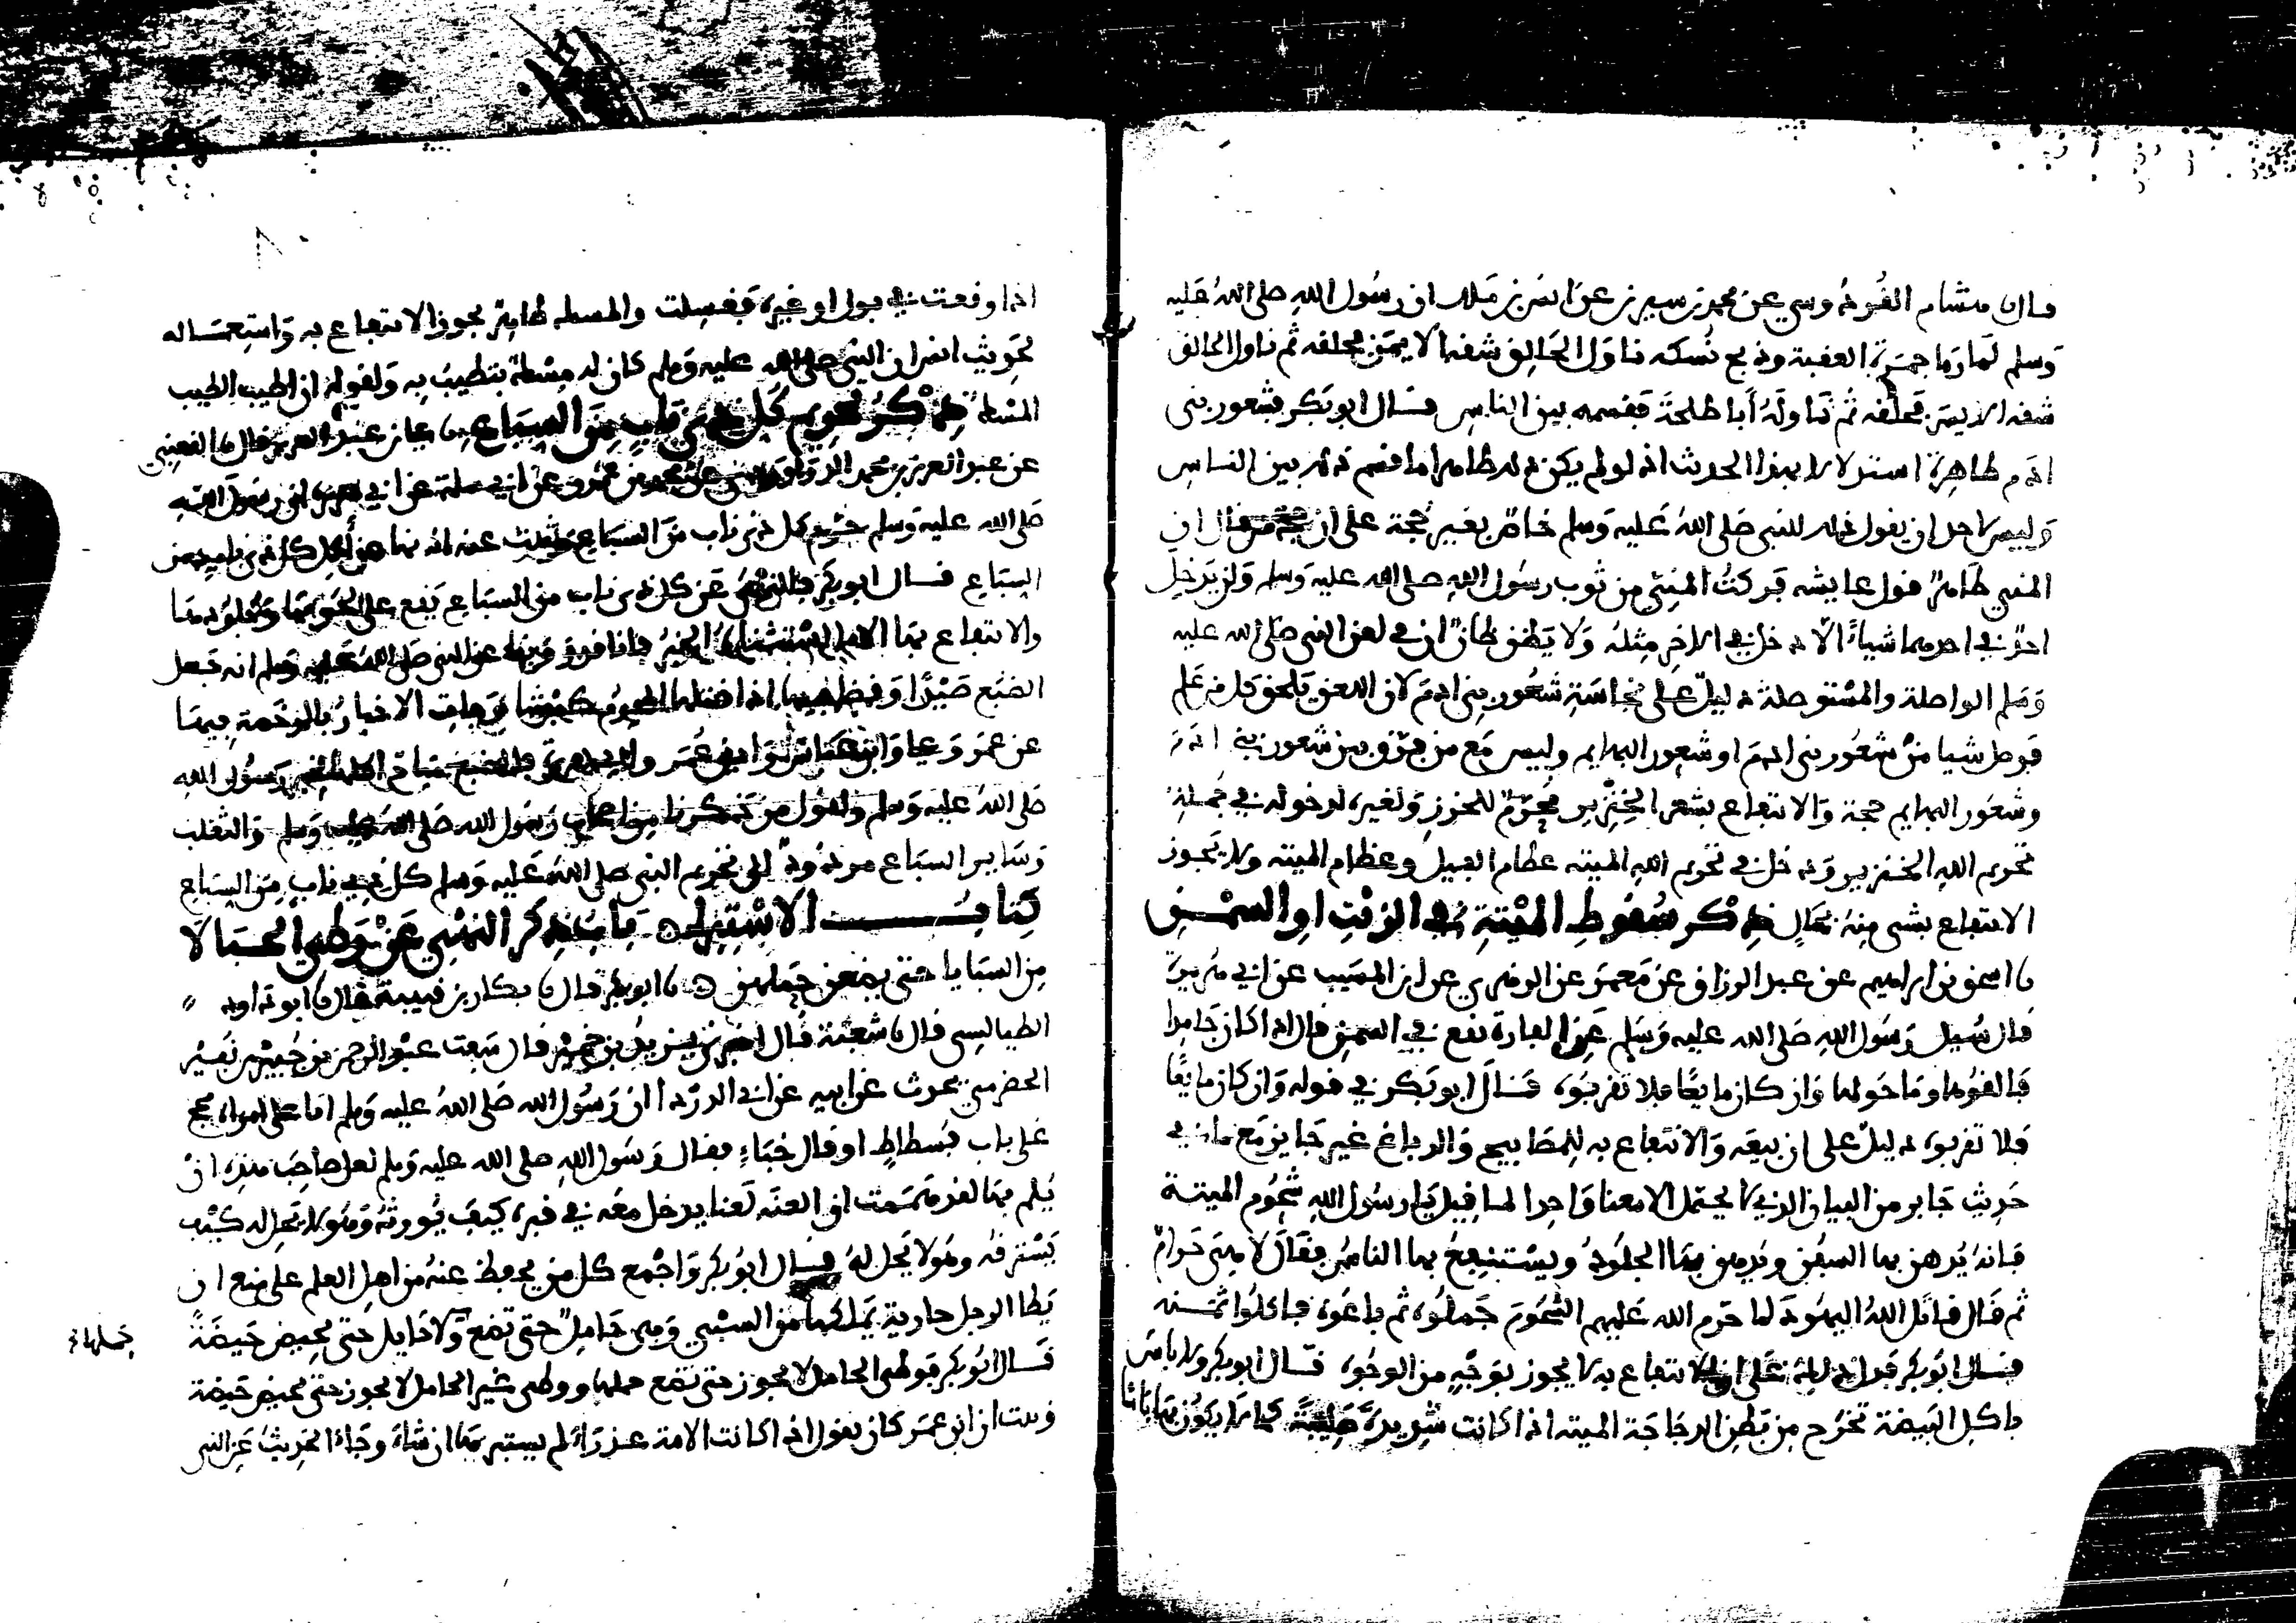 قال هشام القردوسي عن محمد بن سيرين عن انس بن ملك ان رسول الله صلى الله عليه
وسلم لما رما جمرة العقبة وذبح نسكه ناول الحالق شقه الايمن فحلقه ثم ناول الحالق
شقه الايسر فحلقه ثم ناوله أبا طلحة فقسمه بين الناس قال ابو بكر فشعور بني
ادم طاهرة استدلالا بهذا الحديث اذ لو لم يكن ذلك طاهرا ما قسم ذلك بين الناس
وليس لاحد ان يقول ذلك للنبي صلى الله عليه وسلم خاص بغير حجة على ان حجة من قال ان
المني طاهر قول عايشه فركت المني من ثوب رسول الله صلى الله عليه وسلم ولن يدخل
احد في احدهما شياء الا دخل في الاخر مثله ولا يظن ظان ان في لعن النبي صلى الله عليه
وسلم الواصلة والمستوصلة دليل على نجاسة شعور بني ادم لان اللعن يلحق كل من علم
قد وصل شيا من شعور بني ادم او شعور البهايم وليس مع من فرق بين شعور بني ادم
وشعور البهايم حجة والانتفاع بشعر الخنزير محرم للخرز ولغيره لدخوله في جملة
تحريم الله الخنزير ودخل في تحريم الله الميتة عظام الفيل وعظام الميته ولا يجوز
الانتفاع بشي منه بحال ذكر سقوط الميتة في الزيت او السمن
نا اسحق بن ابراهيم عن عبد الرزاق عن معمر عن الزهري عن ابن المسيب عن ابي هريرة
قال سيل رسول الله صلى الله عليه وسلم عن الفارة تقع في السمن قال اذا كان جامدا
فالقوها وما حولها وان كان مايعا فلا تقربوه قال ابو بكر في قوله وان كان مايعا
فلا تقربوه دليل على ان بيعه والانتفاع به للمصابيح والدباغ غير جايز مع ما في
حديث جابر من البيان الذي لا يحتمل الا معنا واحدا لما قيل يا رسول الله شحوم الميتة
فانه يدهن بها السفن ويدهن بها الجلود ويستنفع بها الناس فقال لا هي حرام
ثم قال قاتل الله اليهود لما حرم الله عليهم الشحوم جملوه ثم باعوه فاكلوا ثمنه
قال ابو بكر فدل ذلك على ان الانتفاع به لا يجوز بوجه من الوجوه قال ابو بكر ولا باس
باكل البيضة تخرج من بطن الدجاجة الميته اذا كانت شديدة صلبة
اذا وقعت في بول او غيره فغسلت والمسك طاهر يجوز الانتفاع به واستعماله
لحديث انس ان النبي صلى الله عليه وسلم كان له مسك يتطيب به ولقوله ان اطيب الطيب
المسك ذكر تحريم كل ذي ناب من السباع نا علي بن عبد العزيز قال نا القعنبي
عن عبد العزيز بن محمد الدراوردي عن محمد بن عمرو عن ابي سلمة عن ابي هريرة ان رسول الله
صلى الله عليه وسلم حرم كل ذي ناب من السباع وثبت عنه انه نها عن أكل كل ذي ناب من
السباع قال ابو بكر فالنهي عن كل ذي ناب من السباع يقع على لحومها وجلودها
والانتفاع بها الا ما استثناه الخبر فانا قد روينا عن النبي صلى الله عليه وسلم انه جعل
الضبع صيدا وقضا فيها اذا قتلها المحرم كبشا وجات الاخبار بالرخصة فيها
عن عمر وعلي وابن عباس وابن عمر وابي هريرة فالضبع مباح اكلها رسول الله
صلى الله عليه وسلم ولقول من ذكرنا من اصحاب رسول الله صلى الله عليه وسلم والثعلب
وساير السباع مردود الى تحريم النبي صلى الله عليه وسلم كل ذي ناب من السباع
كتاب الاستبراء باب ذكر النهي عن وطي الحبالا
من السبايا حتى يضعن حملهن نا ابو بكر قال نا بكار بن قتيبة قال نا ابو داود
الطيالسي قال نا شعبة قال اخبرني يزيد بن خمير قال سمعت عبد الرحمن بن جبير بن نفير
الحضرمي يحدث عن ابيه عن ابي الدردا ان رسول الله صلى الله عليه وسلم اتا على امراة مجح
على باب فسطاط او قال خباء فقال رسول الله صلى الله عليه وسلم لعل صاحب هذه ان
يلم بها لقد هممت ان العنه لعنا يدخل معه في قبره كيف يورثه وهو لا يحل له كيف
يسترقه وهو لا يحل له قال ابو بكر واجمع كل من يحفظ عنه من اهل العلم على منع ان
يطا الرجل جارية يملكها من السبي وهي حامل حتى تضع ولا حايل حتى تحيض حيضة
حملها
قال ابو بكر فوطي الحامل لا يجوز حتى تضع حملها ووطي غير الحامل لا يجوز حتى تحيض حيضة
وثبت ان ابن عمر كان يقول اذا كانت الامة عذراء لم يستبرها ان شاء وجاء الحديث عن النبي